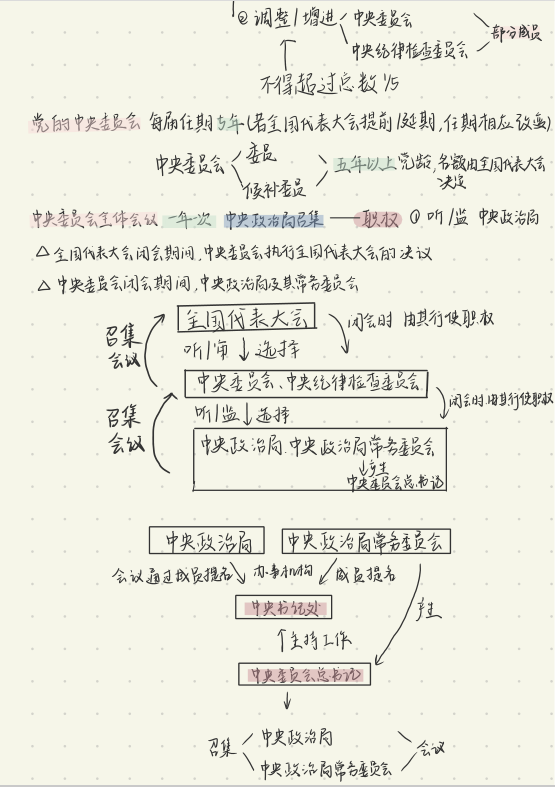 ② 调整/增进 中央委员会
中央纪律检查委员会
部分成员
不得超过总数1/5
党的中央委员会 每届任期5年(若全国代表大会提前/延期,任期相应改变)
中央委员会 委员
候补委员
五年以上党龄,名额由全国代表大会
决定
中央委员会全体会议 一年一次 中央政治局召集 —— 职权 ① 听/监 中央政治局
△ 全国代表大会闭会期间,中央委员会执行全国代表大会的决议
△ 中央委员会闭会期间,中央政治局及其常务委员会
召集
会议
全国代表大会
闭会时 由其行使职权
听/审 选择
中央委员会、中央纪律检查委员会
召集
会议
听/监 选择
闭会时,由其行使职权
中央政治局、中央政治局常务委员会
产生
中央委员会总书记
中央政治局 中央政治局常务委员会
会议通过成员提名 办事机构 成员提名
中央书记处
产生
主持工作
中央委员会总书记
召集 中央政治局
中央政治局常务委员会
会议